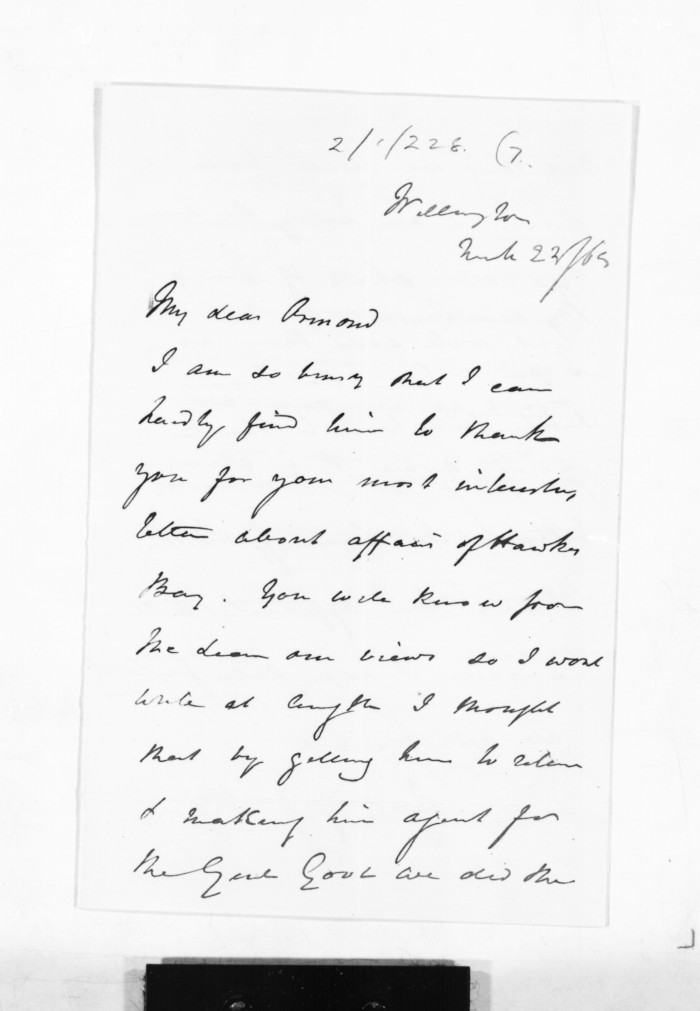 2/1/228. (7.
Wellington
22/65
My dear Ormond
I am so busy that I can
hardly find time to thank
you for your most interesting
letter about affairs of Hawkes
Bay. You will know from
the our views so I wont
write at length I thought
that by getting him to return
& making him agent for
the Genl Govt we did the